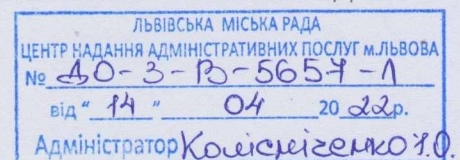 ЛЬВІВСЬКА МІСЬКА РАДА
ЦЕНТР НАДАННЯ АДМІНІСТРАТИВНИХ ПОСЛУГ м.ЛЬВОВА
№ ДО-3-В-5657-Л
від "14" 04 2022р.
Адміністратор Колісніченко Ю.О.